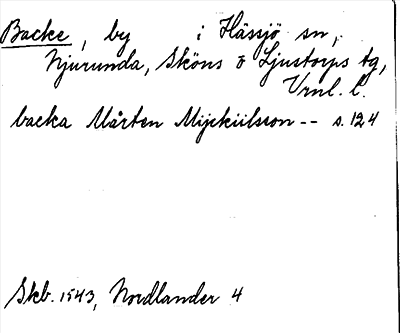 Backe, by i Hässjö sn,
Njurunda, Sköns & Ljustorps tg,
Vrnl. l.
backa Mårten Mijckiilsson -- s. 124
Skb. 1543, Nordlander 4